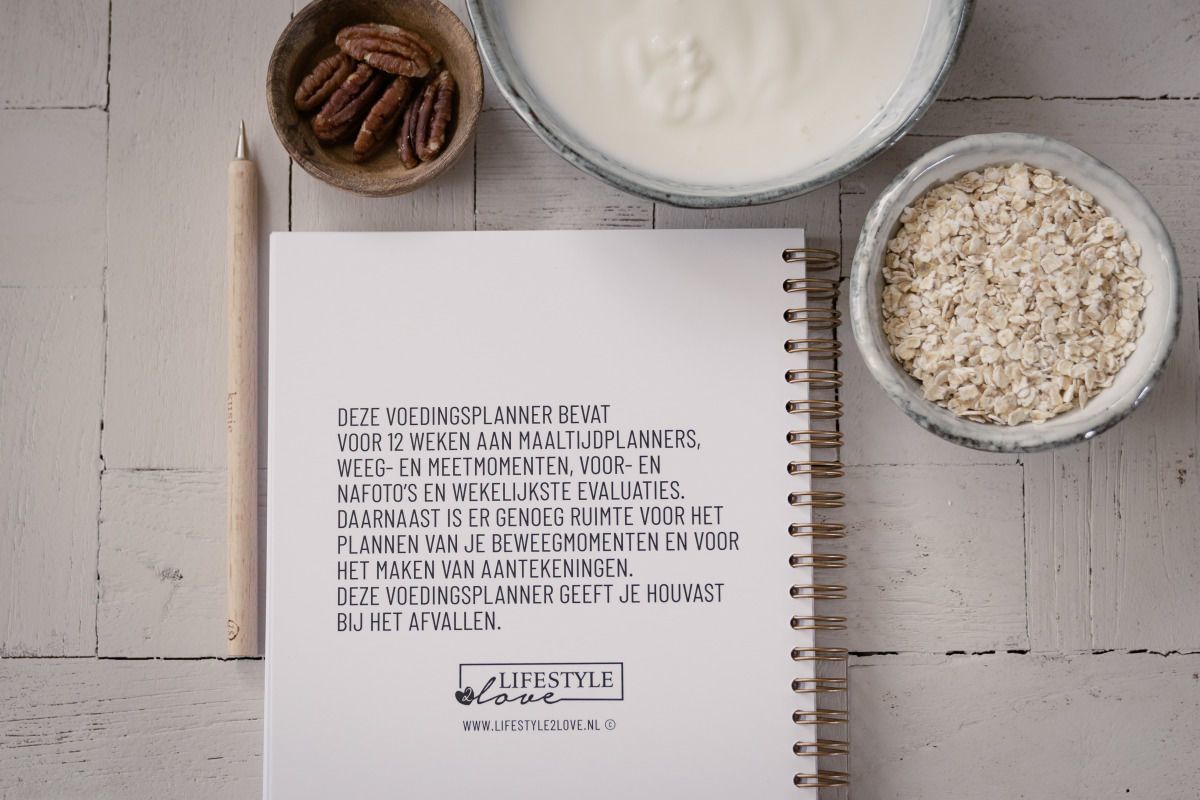 DEZE VOEDINGSPLANNER BEVAT
VOOR 12 WEKEN AAN MAALTIJDPLANNERS,
WEEG- EN MEETMOMENTEN, VOOR- EN
NAFOTO'S EN WEKELIJKSTE EVALUATIES.
DAARNAAST IS ER GENOEG RUIMTE VOOR HET
PLANNEN VAN JE BEWEEGMOMENTEN EN VOOR
HET MAKEN VAN AANTEKENINGEN.
DEZE VOEDINGSPLANNER GEEFT JE HOUVAST
BIJ HET AFVALLEN.
LIFESTYLE
2 love
WWW.LIFESTYLE2LOVE.NL ©